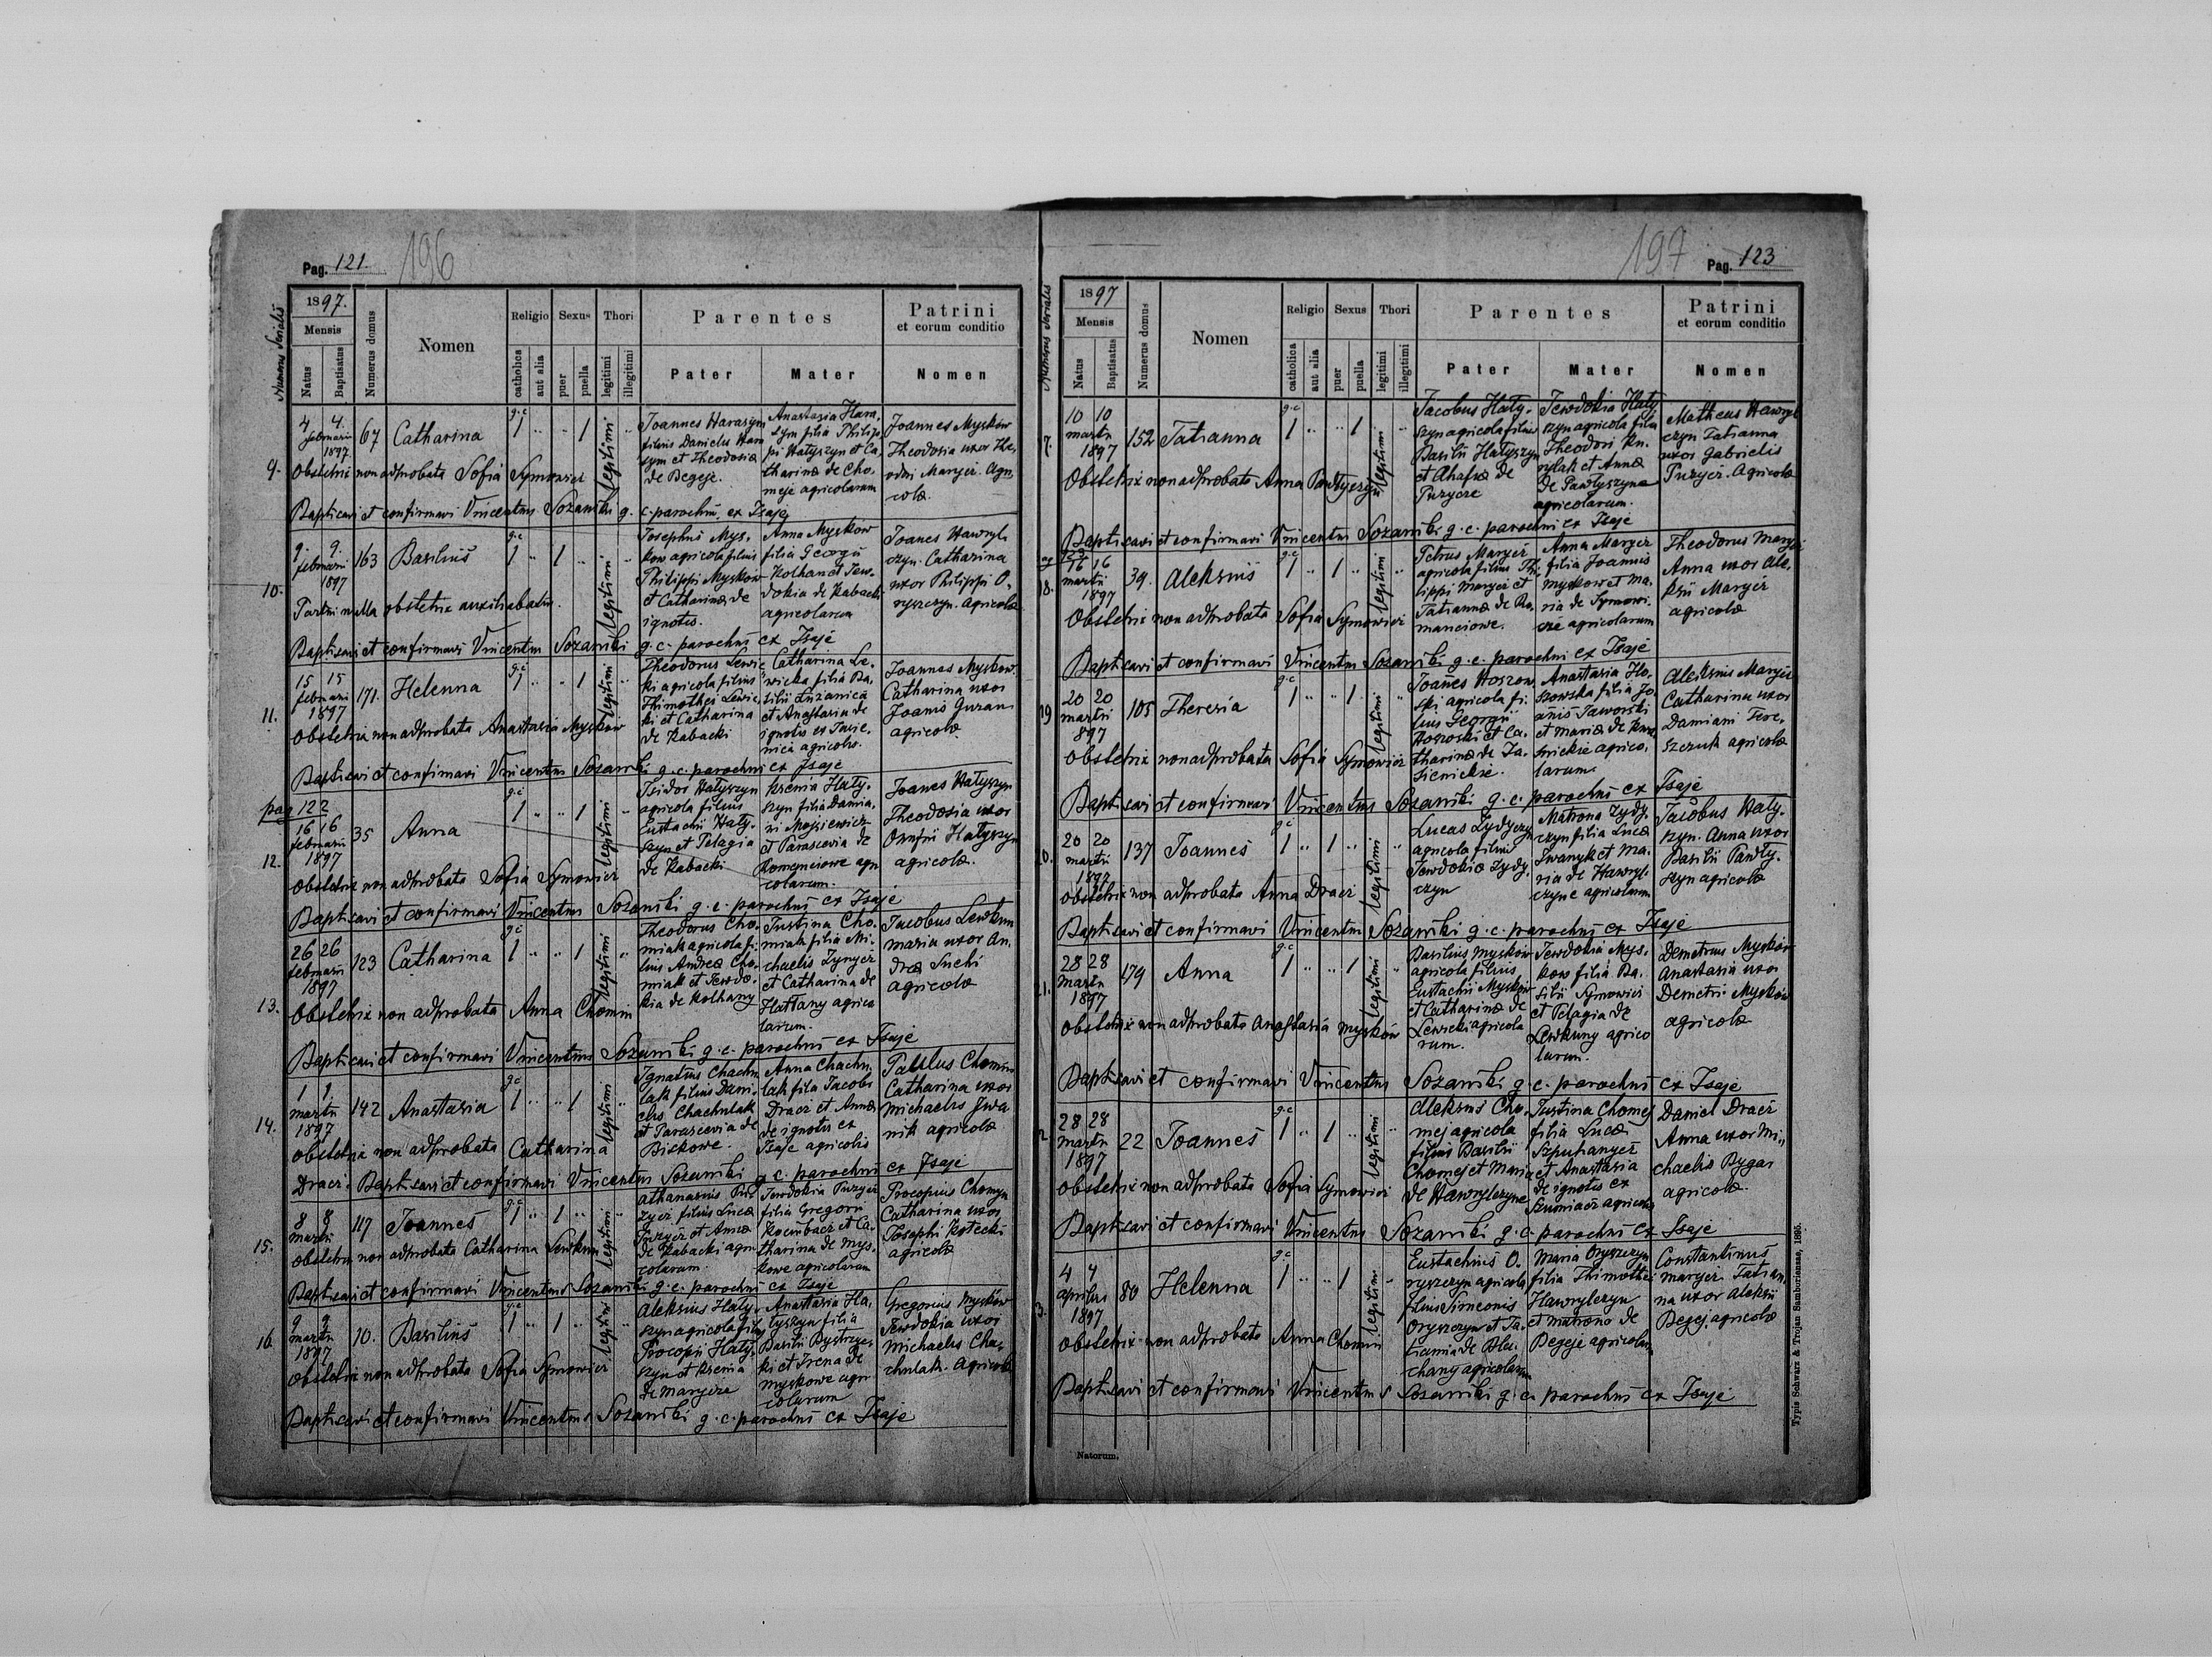 Pag. 121. 196
Numerus Serialis
1897.
Mensis
Natus
Baptisatus
Numerus domus
Nomen
Religio
catholica
aut alia
Sexus
puer
puella
Thori
legitimi
illegitimi
Parentes
Pater
Mater
Patrini
et eorum conditio
Nomen
9.
4 4.
februarii
1897
67
Catharina
g.c
1 " " 1
legitimi
"
Joannes Harasym
filius Danielis Hara
sym et Theodosiæ
de Begeje.
Anastasia Hara,
sym filia Philip,
pi Hatyszyn et Ca,
tharinæ de Cho,
meje agricolarum
Joannes Mysków
Theodosia uxor The,
odori Marycz. Agri,
colæ
Obstetrix non adprobata Sofia Symowicz
Baptisavi et confirmavi Vincentius Sozański g. c. parochus ex Isaje
10.
9. 9.
februarii
1897
163
Basilius
g.c
1 " 1 "
legitimi
"
Josephus Mys,
ków agricola filius
Philippi Myskow
et Catharinæ de
ignotis.
Anna Myskow
filia Georgii
Kolhan et Jew,
dokia de Kabacki
agricolarum
Joanes Hawryl
czyn. Catharina
uxor Philippi O,
ryszczyn. agricolæ
Partui nulla obstetrix auxiliabatur.
Baptisavi et confirmavi Vincentius Sozański g. c. parochus ex Isaje
11.
15 15
februarii
1897
171.
Helenna
g.c
1 " " 1
legitimi
"
Theodorus Lewic
ki agricola filius
Thimothei Lewic,
ki et Catharina
de Kabacki
Catharina Le,
wicka filia Ba,
silii Łużanica
et Anastasia de
ignotis ex Jasie,
nica agricolis.
Joannas Myskow.
Catharina uxor
Joanis Guran
agricolæ
Obstetrix non adprobata Anastasia Myskow
Baptisavi et confirmavi Vincentius Sozański g. c. parochus ex Isaje
pag 122
12.
16 16
februarii
1897
35
Anna
g.c
1 " " 1
legitimi
"
Isidor Hatyszyn
agricola filius
Eustachii Haty,
szyn et Pelagia
de Kabacki
Ksenia Haty,
szyn filia Damia,
ni Mojsiewicz
et Parascevia de
Komenciowe agri
colarum.
Joanes Hatyszyn
Theodosia uxor
Onufrii Hatyszyn
agricolæ.
Obstetrix non adprobata Sofia Symowicz
Baptisavi et confirmavi Vincentius Sozański g. c. parochus ex Isaje
13.
26 26
februarii
1897
123
Catharina
g.c
1 " " 1
legitimi
"
Theodorus Cho,
miak agricola fi,
lius Andreæ Cho,
miak et Jewdo,
kia de Kolhany
Justina Cho,
miak filia Mi,
chaelis Zynycz
et Catharina de
Hattany agrico
larum.
Jacobus Lewkun
maria uxor An,
dreæ Suchi
agricolæ
Obstetrix non adprobata Anna Chomin
Baptisavi et confirmavi Vincentius Sozański g. c. parochus ex Isaje
14.
1 1
martii
1897
142
Anastasia
g.c
1 " " 1
legitimi
"
Ignatius Chachu
lak filius Dani,
elis Chachulak
et Parascevia de
Biskowe.
Anna Chachu,
lak filia Jacobi
Dracz et Annæ
de ignotis ex
Isaje agricolis
Paulus Chomin
Catharina uxor
Michaelis Iwa
nik agricolæ
Obstetrix non adprobata Catharina
Dracz. Baptisavi et confirmavi Vincentius Sozański g. c. parochus ex Isaje
15.
8 8
martii
117
Joannes
g.c
1 " 1 "
legitimi
"
Athanasius Pu,
zycz filius Lucæ
Puzycz et Annæ
de Kabacki agri
colarum.
Jewdokia Puzycz
filia Gregorii
Kocumbacz et Ca,
tharina de Mys,
kowe agricolarum
Procopius Chomyn
Catharina uxor
Josephi Kotecki
agricolæ
Obstetrix non adprobata Catharina Lewkun
Baptisavi et confirmavi Vincentius Sozański g. c. parochus ex Isaje
16.
9 9
martii
1897
10.
Basilius
g.c
1 " 1 "
legitimi
"
Aleksius Haty,
szyn agricola filius
Procopii Haty,
szyn et Ksenia
de Marycze
Anastasia Ha,
tyszyn filia
Basilii Bystrzyc,
ki et Irena de
Myskowe agri
colarum
Gregorius Myskow
Jewdokia uxor
Michaelis Cha,
chulak. Agricolæ
Obstetrix non adprobata Sofia Symowicz
Baptisavi et confirmavi Vincentius Sozański g. c. parochus ex Isaje
197 Pag. 123
Numerus Serialis
1897
Mensis
Natus
Baptisatus
Numerus domus
Nomen
Religio
catholica
aut alia
Sexus
puer
puella
Thori
legitimi
illegitimi
Parentes
Pater
Mater
Patrini
et eorum conditio
Nomen
7.
10 10
martii
1897
152
Tatianna
g.c
1 " " 1
legitimi
"
Jacobus Haty,
szyn agricola filius
Basilii Hatyszyn
et Ahafia de
Puzycze
Jewdokia Haty
szyn agricola filia
Theodori Ku,
rylak et Annæ
de Pawłyszyne
agricolarum.
Matheus Hawryl
czyn Tatianna
uxor Gabrielis
Puzycz. Agricolæ
Obstetrix non adprobata Anna Pawłyszyn
Baptisavi et confirmavi Vincentius Sozański g. c. parochus ex Isaje
8.
16 16
martii
1897
39.
Aleksius
g.c
1 " 1 "
legitimi
"
Petrus Marycz
agricola filius Phi,
lippi Marycz et
Tatiannæ de Ro,
manciowe.
Anna Marycz
filia Joannis
Myskow et Ma,
ria de Symowi,
cze agricolarum
Theodorus Marycz
Anna uxor Ale,
ksii Marycz
agricolæ
Obstetrix non adprobata Sofia Symowicz
Baptisavi et confirmavi Vincentius Sozański g. c. parochus ex Isaje
19
20 20
martii
897
105
Theresia
g.c
1 " " 1
legitimi
"
Joanes Hoszow,
ski agricola fi,
lius Georgii
Hoszoski et Ca,
tharinæ de Ja,
sienickie.
Anastasia Ho,
szowska filia Jo,
anis Jaworski
et maria de
agrico,
larum.
Aleksius Marycz
Catharina uxor
Damiani Fere,
szczuk agricolæ
Obstetrix non adprobata Sofia Symowicz
Baptisavi et confirmavi Vincentius Sozański g. c. parochus ex Isaje
20.
20 20
martii
1897
137
Joannes
g.c
1 " 1 "
legitimi
"
Lucas Zydyczyn
agricola filius
Jewdokiæ Zydy,
czyn
Matrona Zydy,
czyn filia Lucæ
Iwanyk et Ma,
ria de Hawryl,
czyne agricolarum
Jacobus Haty,
szyn. Anna uxor
Basilii Pawły,
szyn agricolæ
Obstetrix non adprobata Anna Dracz
Baptisavi et confirmavi Vincentius Sozański g. c. parochus ex Isaje
21.
28 28
martii
1897
179
Anna
g.c
1 " " 1
legitimi
"
Basilius Myskow
agricola filius
Eustachii Myskow
et Catharinæ de
Lewicki agricola
rum.
Jewdokia Mys,
kow filia Ba,
silii Symowicz
et Pelagia de
Lewkuny agrico
larum.
Demetrius Myskow
Anastasia uxor
Demetrii Myskow
agricolæ
Obstetrix non adprobata Anastasia Myskow
Baptisavi et confirmavi Vincentius Sozański g. c. parochus ex Isaje
2
28 28
martii
1897
22
Joannes
g.c
1 " 1 "
legitimi
"
Aleksius Cho,
mej agricola
filius Basilii
Chomej et Maria
de Hawrylczyne
Justina Chomej
filia Lucæ
Szpuhanycz
et Anastasia
de ignotis ex
Szumiacz agricolis
Daniel Dracz
Anna uxor Mi,,
chaelis Bygar
agricolæ.
Obstetrix non adprobata Sofia Symowicz
Baptisavi et confirmavi Vincentius Sozański g. c. parochus ex Isaje
3.
4 4
aprilis
1897
80
Helenna
g.c
1 " " 1
legitimi
"
Eustachius O,
ryszczyn agricola
filius Simeonis
Oryszczyn et Ta,
tianna de Bla,
chany agricolarum
Maria Oryszczyn
filia Thimothei
Hawrylczyn
et matrona de
Begeje agricolarum
Constantinus
Marycz. Tatian,
na uxor Aleksii
Begej. agricolæ
Obstetrix non adprobata Anna Chomin
Baptisavi et confirmavi Vincentius Sozański g. c. parochus ex Isaje
Natorum.
Typis Schwarz & Trojan Samboriensas, 1895.